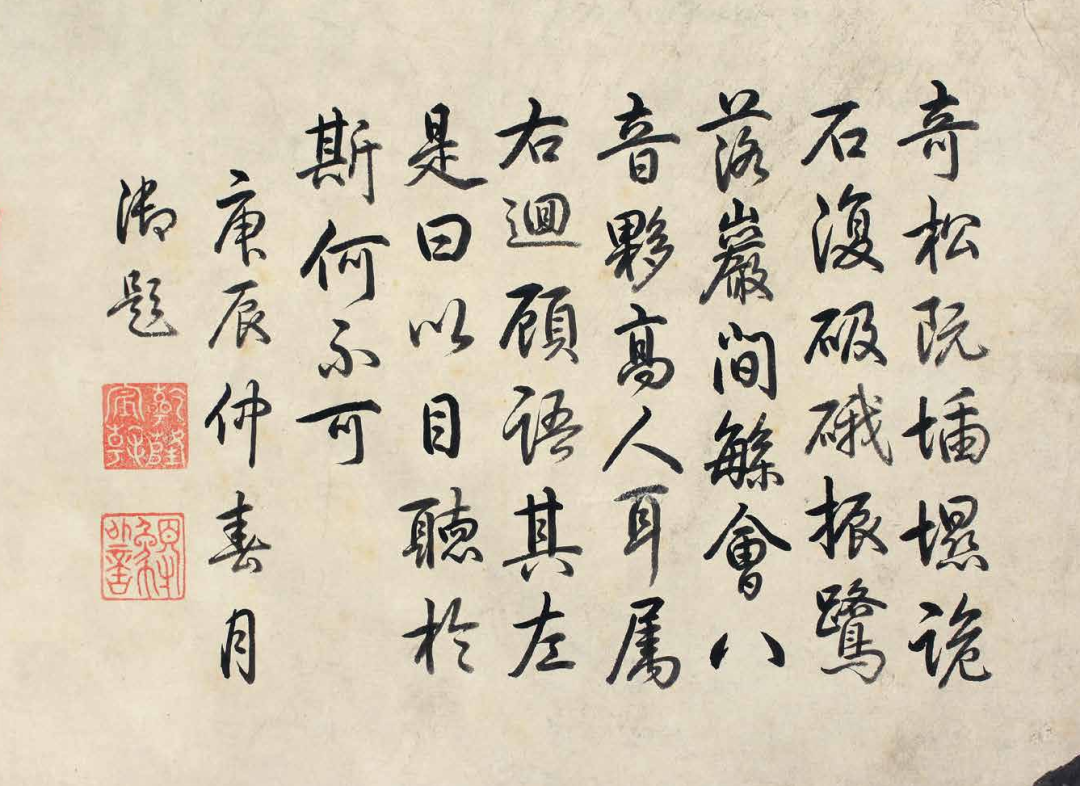 奇松阮詭
石復砐硪振鷺
上落巖間緐會八
音夥高人耳属
右迴顧語其左
是曰以目聽於
斯何不可
庚辰仲春月
御題
乾隆宸翰